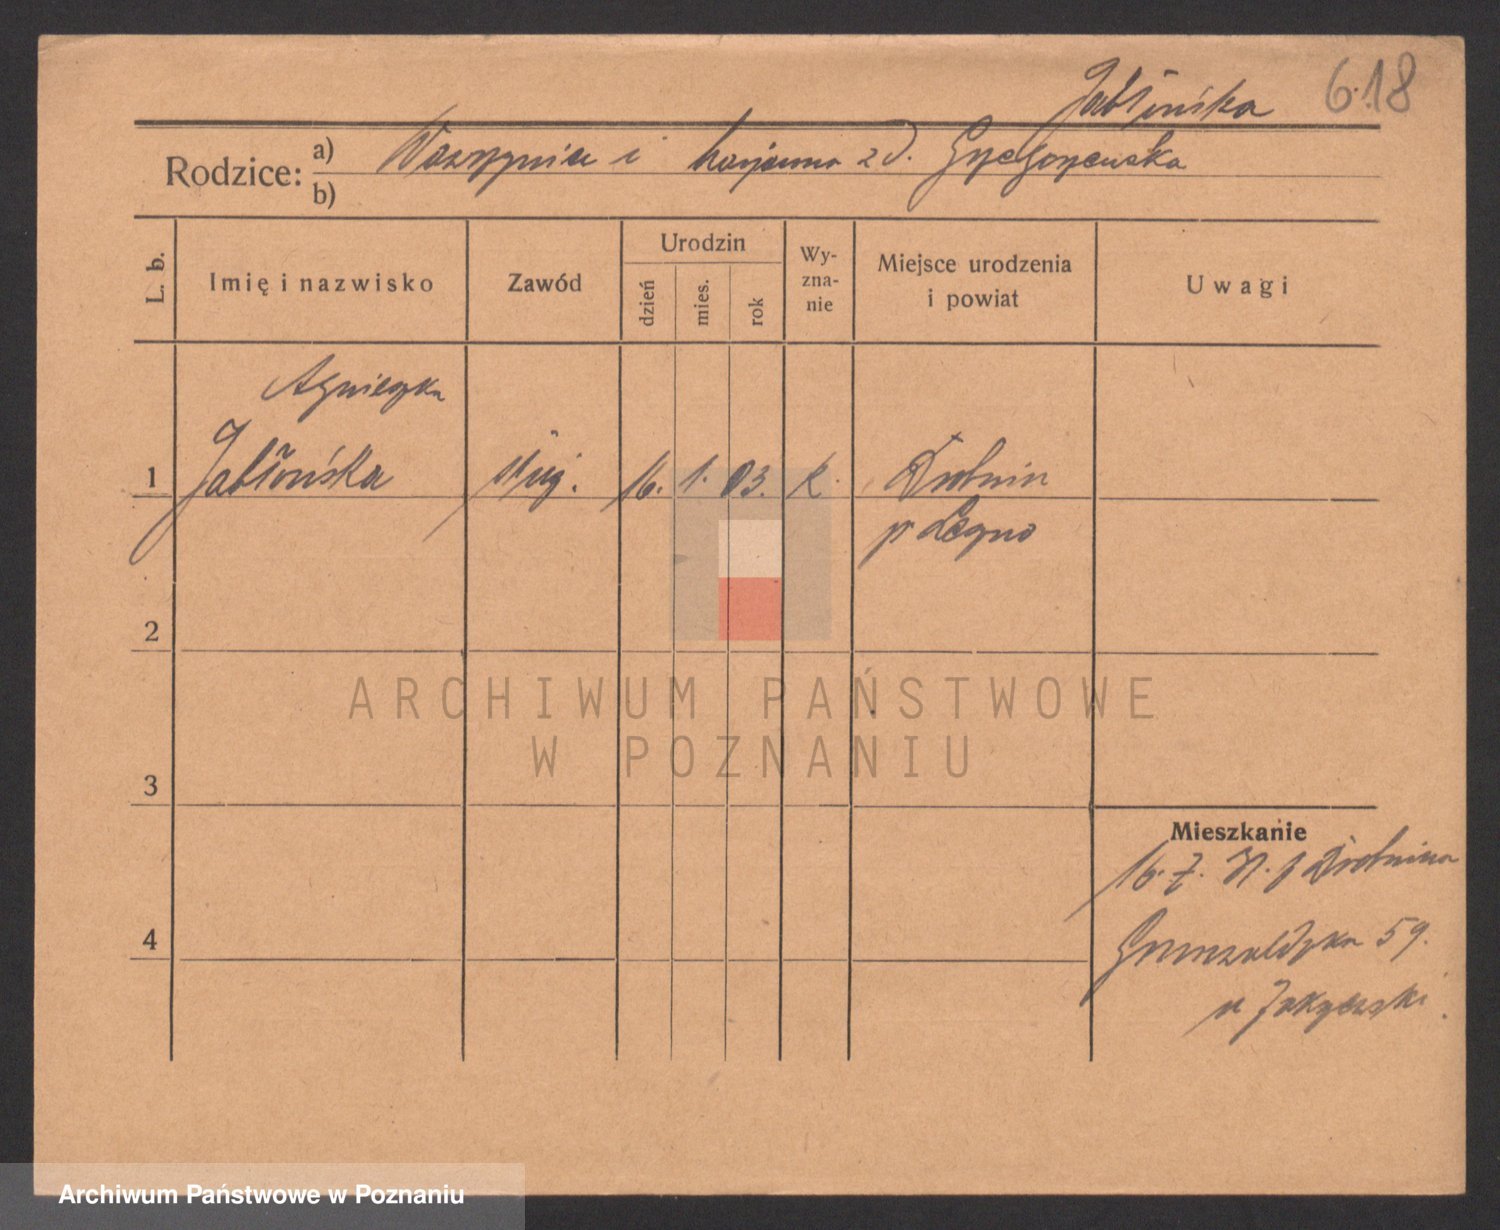 Jabłońska 618
Rodzice: a) b) Wawrzyniec i Marjanna z d. Grzegorzewska
L. b.
Imię i nazwisko
Zawód
Urodzin
dzień
mies.
rok
Wy-
zna-
nie
Miejsce urodzenia
i powiat
Uwagi
Agnieszka
1 Jabłońska służ. 16. 1. 03. k. Drobnin
p Leszno
2
3
4
Mieszkanie
16. 7. Drobnina
Grunwaldzka 59.
u
ARCHIWUM PAŃSTWOWE
W POZNANIU
Archiwum Państwowe w Poznaniu